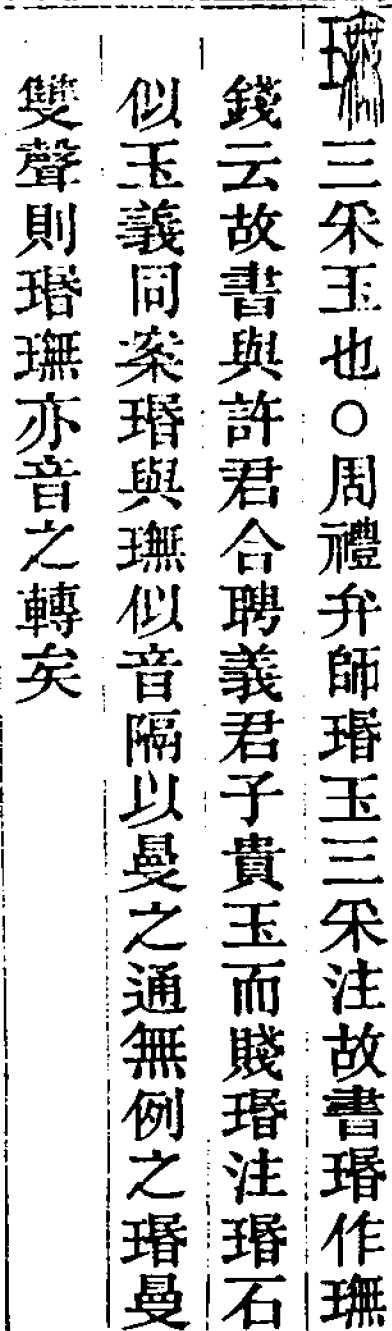 璑三釆玉也○周禮弁師瑉玉三釆注故書瑉作璑
錢云故書與許君合聘義君子貴玉而賤瑉注瑉石
似玉義同案瑉與璑似音隔以曼之通無例之瑉曼
雙聲則瑉璑亦音之轉矣